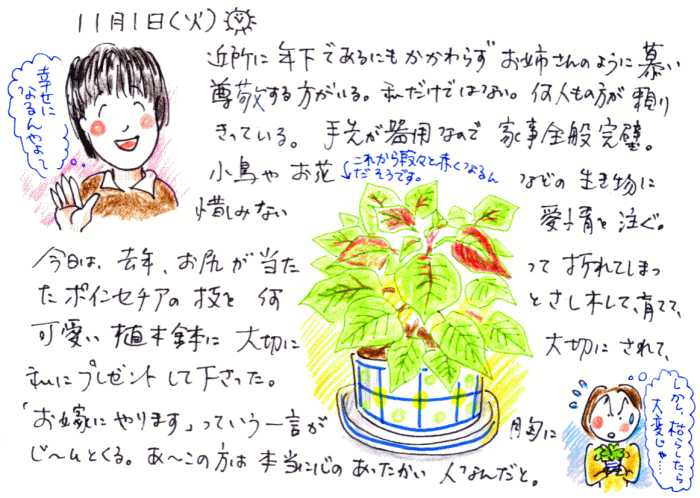 11月1日(火)
近所に年下であるにもかかわらずお姉さんのように慕い
尊敬する方がいる。私だけではない。何人もの方が頼り
きっている。手先が器用なので家事全般完璧。
小鳥やお花などの生き物に
これから段々と赤くなるん
だそうです。
惜しみない愛情を注ぐ。
今日は、去年、お尻が当たって折れてしまっ
たポインセチアの枝を何とさし木して、育てて、
可愛い植木鉢に大切に大切にされて、
私にプレゼントして下さった。
「お嫁にやります」っていう一言が胸に
じ〜んとくる。あ〜この方は本当に心のあったかい人なんだと。
幸せに
なるんやよ〜
かれ、枯らしたら
大変じゃ…